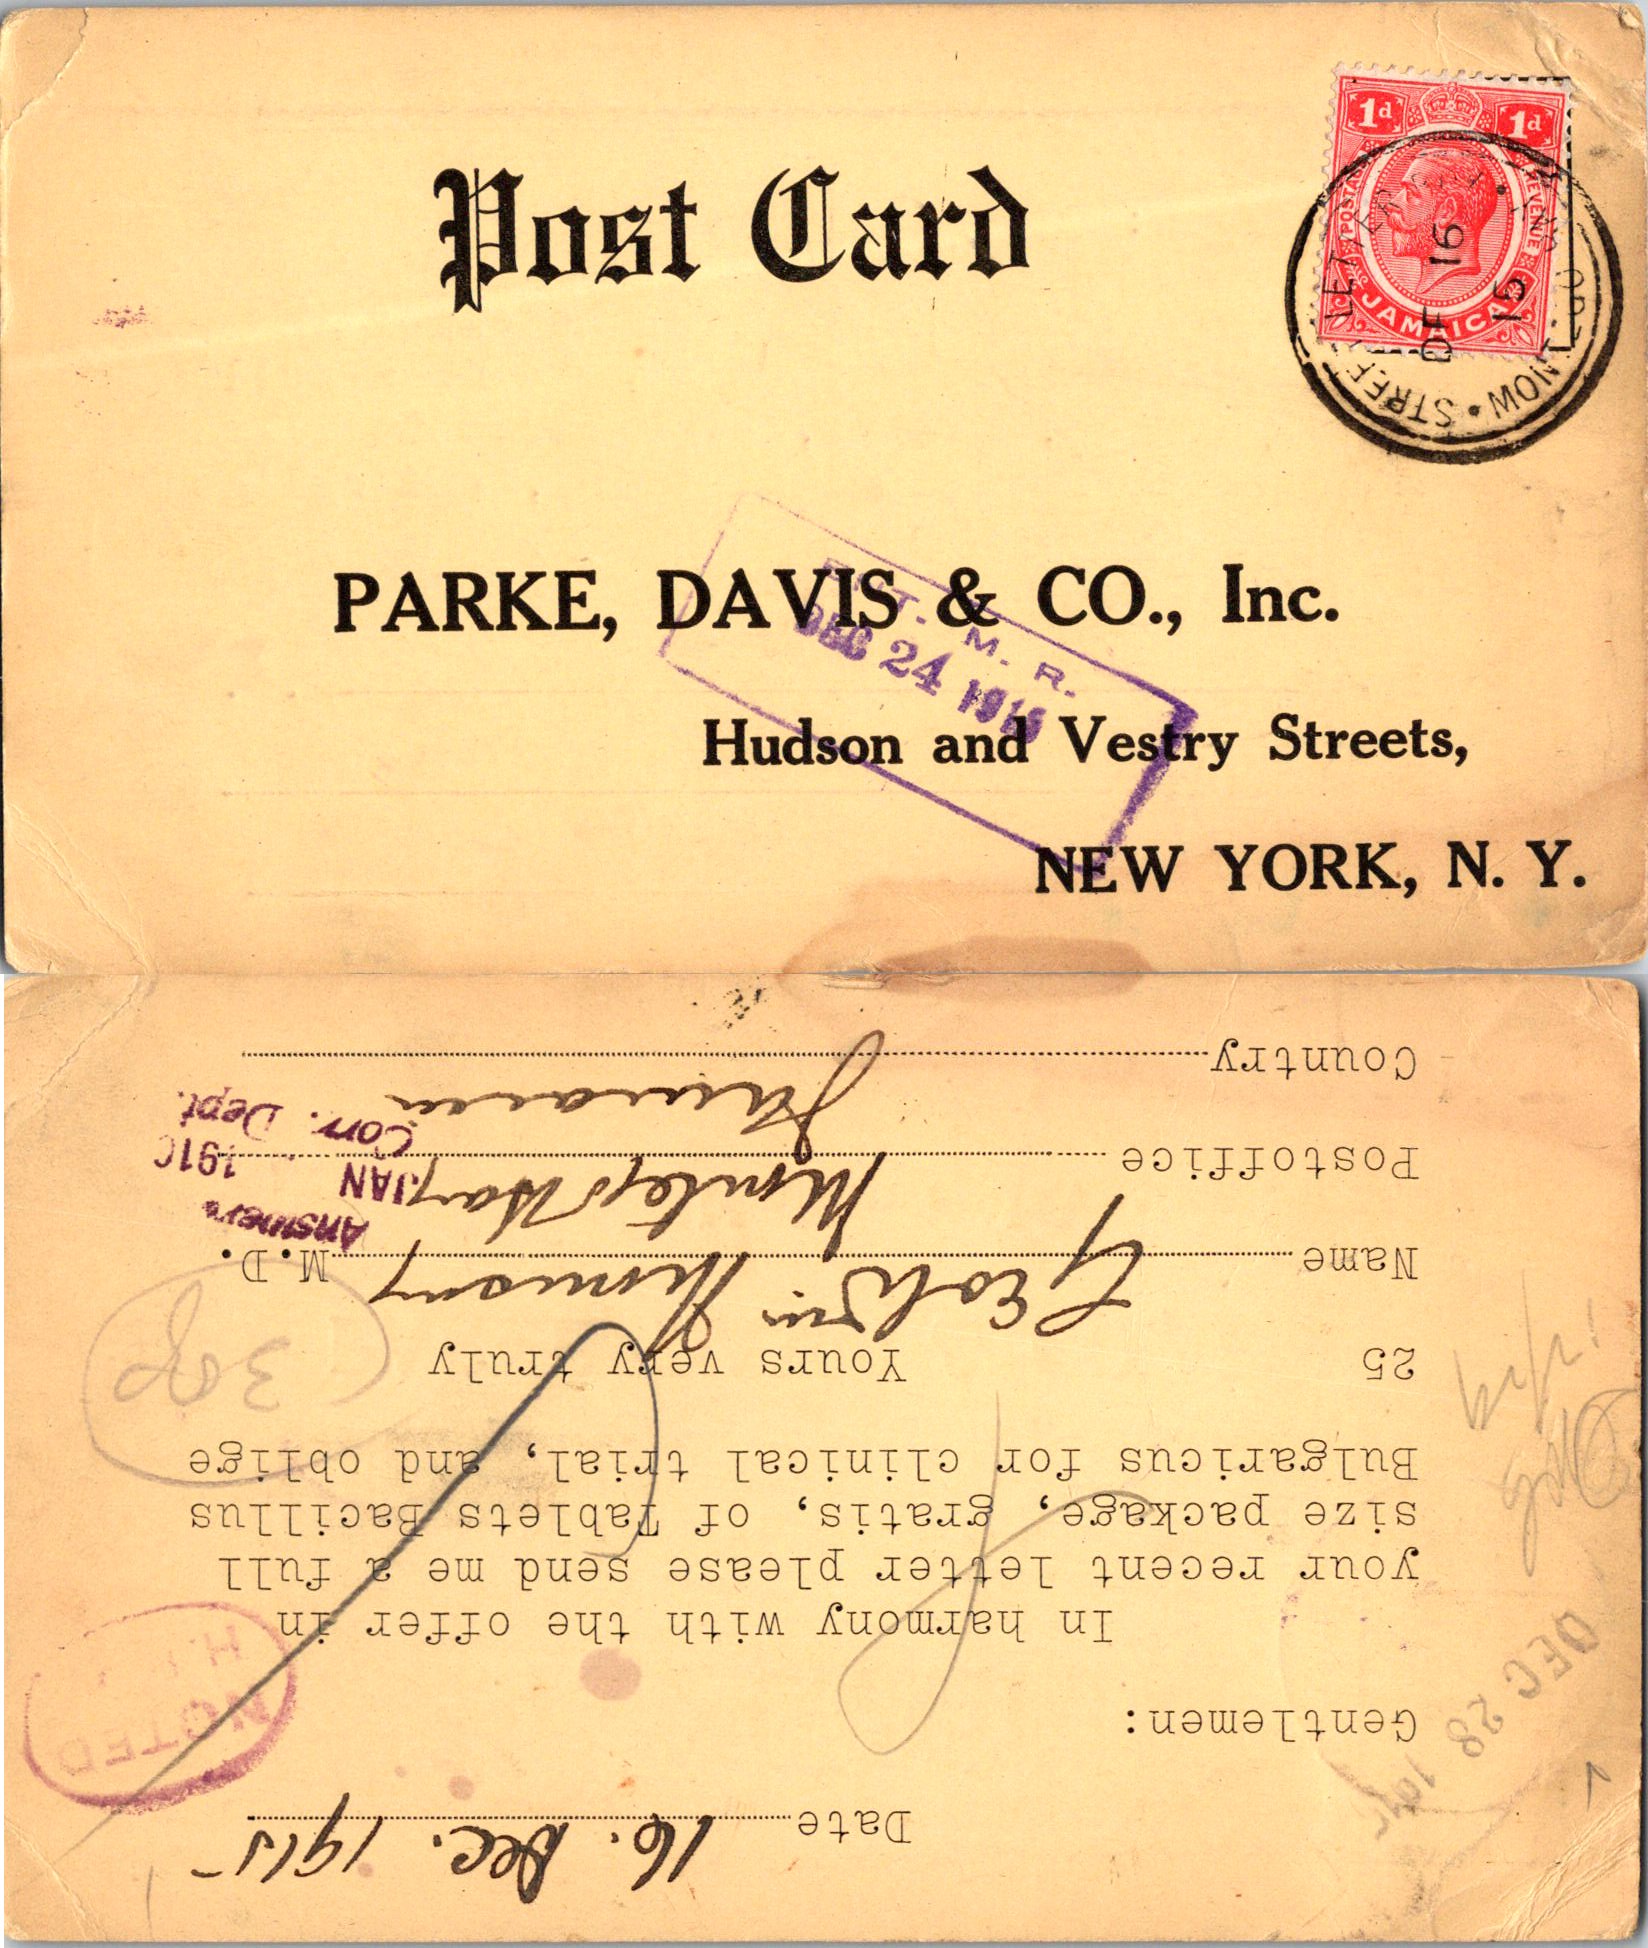 Post Card
1d 1d
POSTAGE REVENUE
JAMAICA
STREET LETTER
MONT
16
15
PARKE, DAVIS & CO., Inc.
M. R.
DEC 24
Hudson and Vestry Streets,
NEW YORK, N. Y.
Date 16. Dec. 1915
NOTED
DEC 28
Gentlemen:
In harmony with the offer in
your recent letter please send me a full
size package, gratis, of Tablets Bacillus
Bulgaricus for clinical trial, and oblige
25 Yours very truly
Name M. D.
Postoffice Montego Bay
JAN 191
Corr. Dept.
Country Jamaica